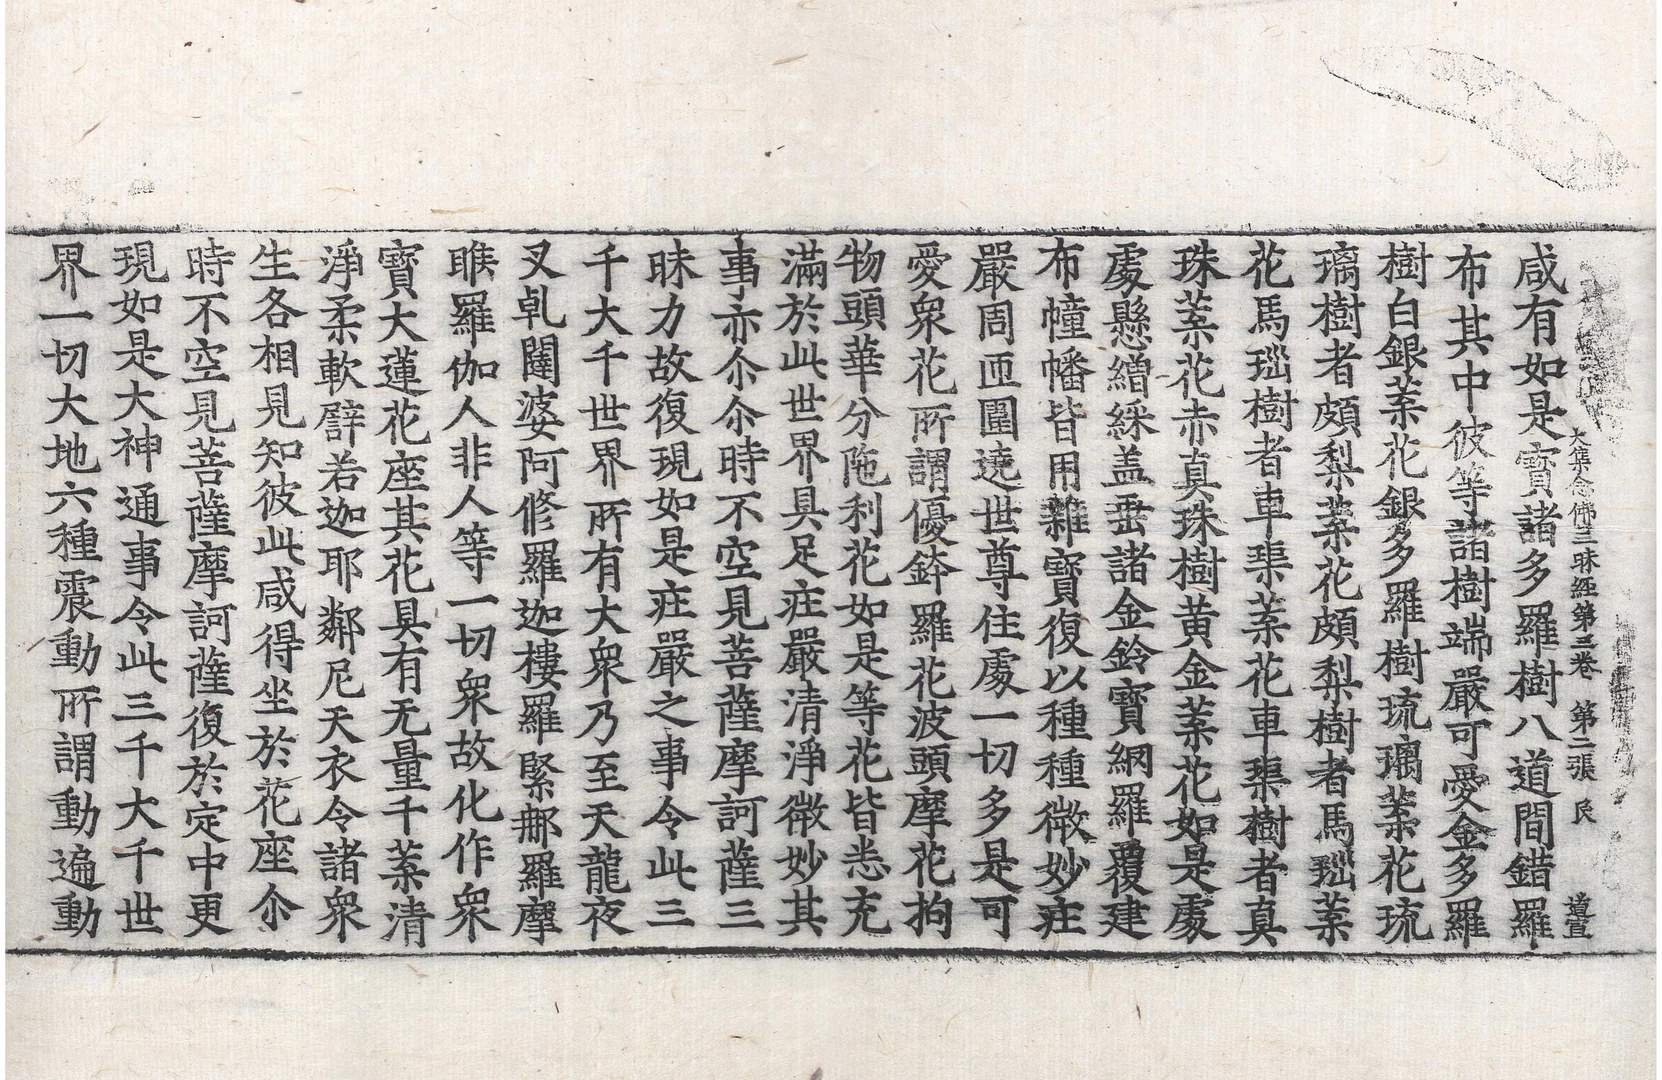 大集念佛三昧經第三卷　第二張　民　道宣
咸有如是寶諸多羅樹八道間錯羅
布其中彼等諸樹端嚴可愛金多羅
樹白銀葉花銀多羅樹琉璃葉花琉
璃樹者頗梨葉花頗梨樹者馬瑙葉
花馬瑙樹者車𤦲葉花車𤦲樹者真
珠葉花赤真珠樹黃金葉花如是處
處懸繒綵盖垂諸金鈴寶網羅覆建
布幢幡皆用雜寶復以種種微妙庄
嚴周匝圍遶世尊住處一切多是可
愛衆花所謂優鉢羅花波頭摩花拘
物頭華分陁利花如是等花皆悉充
滿於此世界具足庄嚴清淨微妙其
事亦尒尒時不空見菩薩摩訶薩三
昧力故復現如是庄嚴之事令此三
千大千世界所有大衆乃至天龍夜
叉乹闥婆阿修羅迦樓羅緊那羅摩
睺羅伽人非人等一切衆故化作衆
寶大蓮花座其花具有无量千葉清
淨柔軟譬若迦耶鄰尼天衣令諸衆
生各相見知彼此咸得坐於花座尒
時不空見菩薩摩訶薩復於定中更
現如是大神通事令此三千大千世
界一切大地六種震動所謂動遍動